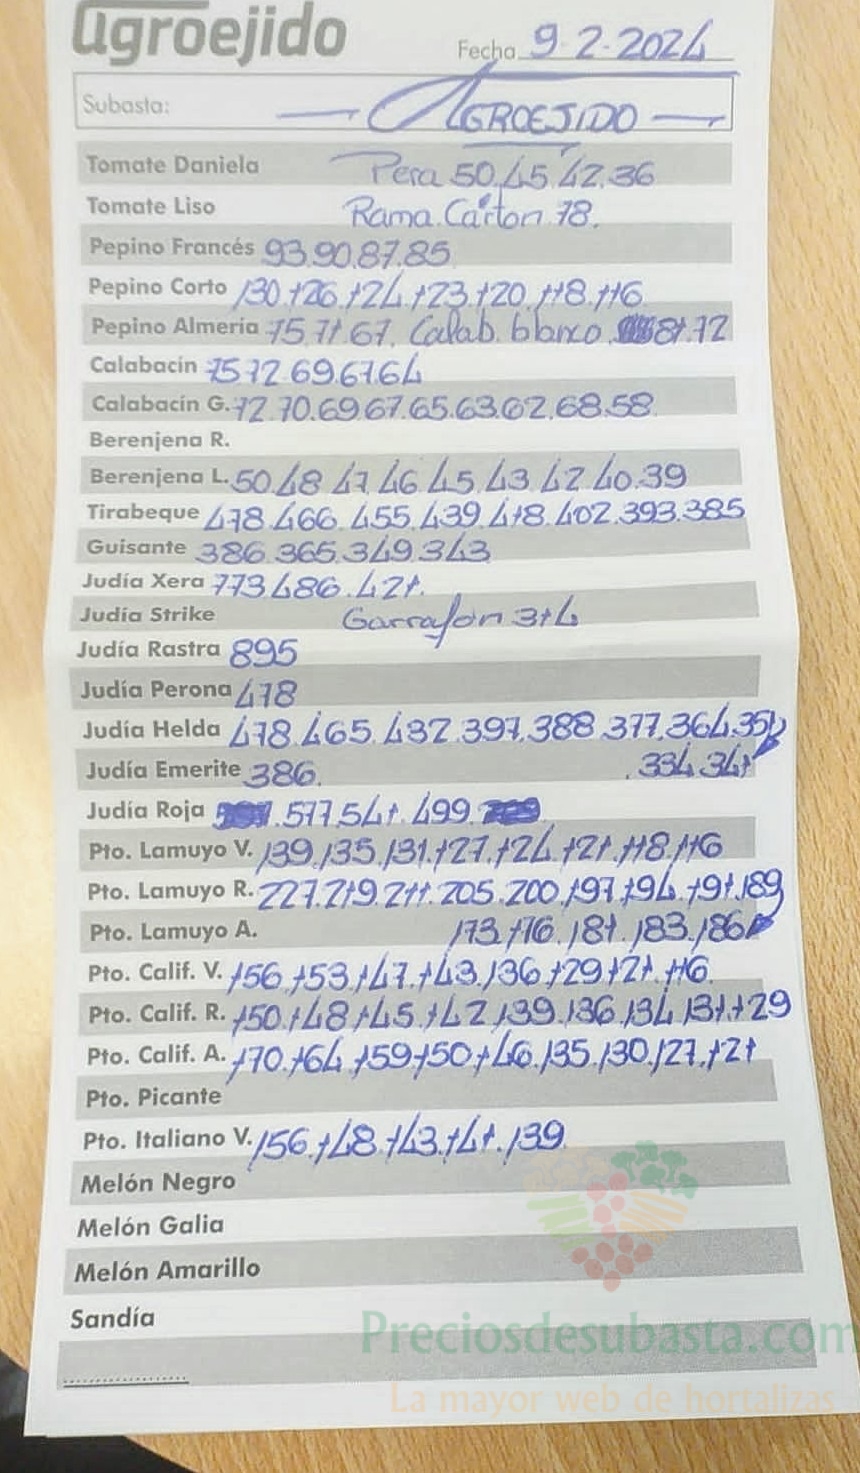 agroejido
Fecha 9-2-2024
Subasta: — AGROEJIDO —
Tomate Daniela Pera 50.45.42.36
Tomate Liso Rama Carton 78.
Pepino Francés 93.90.87.85
Pepino Corto 130.126.124.123.120.118.116
Pepino Almería 75.71.67. Calab. blanco 81.72
Calabacín 75.72.69.67.64
Calabacín G. 72.70.69.67.65.63.62.68.58
Berenjena R.
Berenjena L. 50.48.47.46.45.43.42.40.39
Tirabeque 478.466.455.439.418.402.393.385
Guisante 386.365.349.343
Judía Xera 773.486.421.
Judía Strike Garrafon 314
Judía Rastra 895
Judía Perona 478
Judía Helda 478.465.432.397.388.377.364.351
Judía Emerite 386. .334.341
Judía Roja .577.541.499.
Pto. Lamuyo V. 139.135.131.127.124.121.118.116
Pto. Lamuyo R. 227.219.211.205.200.197.194.191.189
Pto. Lamuyo A. 173.176.181.183.186
Pto. Calif. V. 156.153.147.143.136.129.121.116
Pto. Calif. R. 150.148.145.142.139.136.134.131.129
Pto. Calif. A. 170.164.159.150.146.135.130.127.121
Pto. Picante
Pto. Italiano V. 156.148.143.141.139
Melón Negro
Melón Galia
Melón Amarillo
Sandía
Preciosdesubasta.com
La mayor web de hortalizas